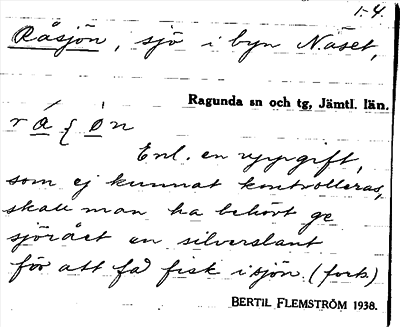 1-4.
Råsjön, sjö i byn Näset,
Ragunda sn och tg, Jämtl. län.
Enl. en uppgift,
som ej kunnat kontrolleras,
skall man ha behövt ge
sjörået en silverslant
för att få fisk i sjön. (forts.)
BERTIL FLEMSTRÖM 1938.